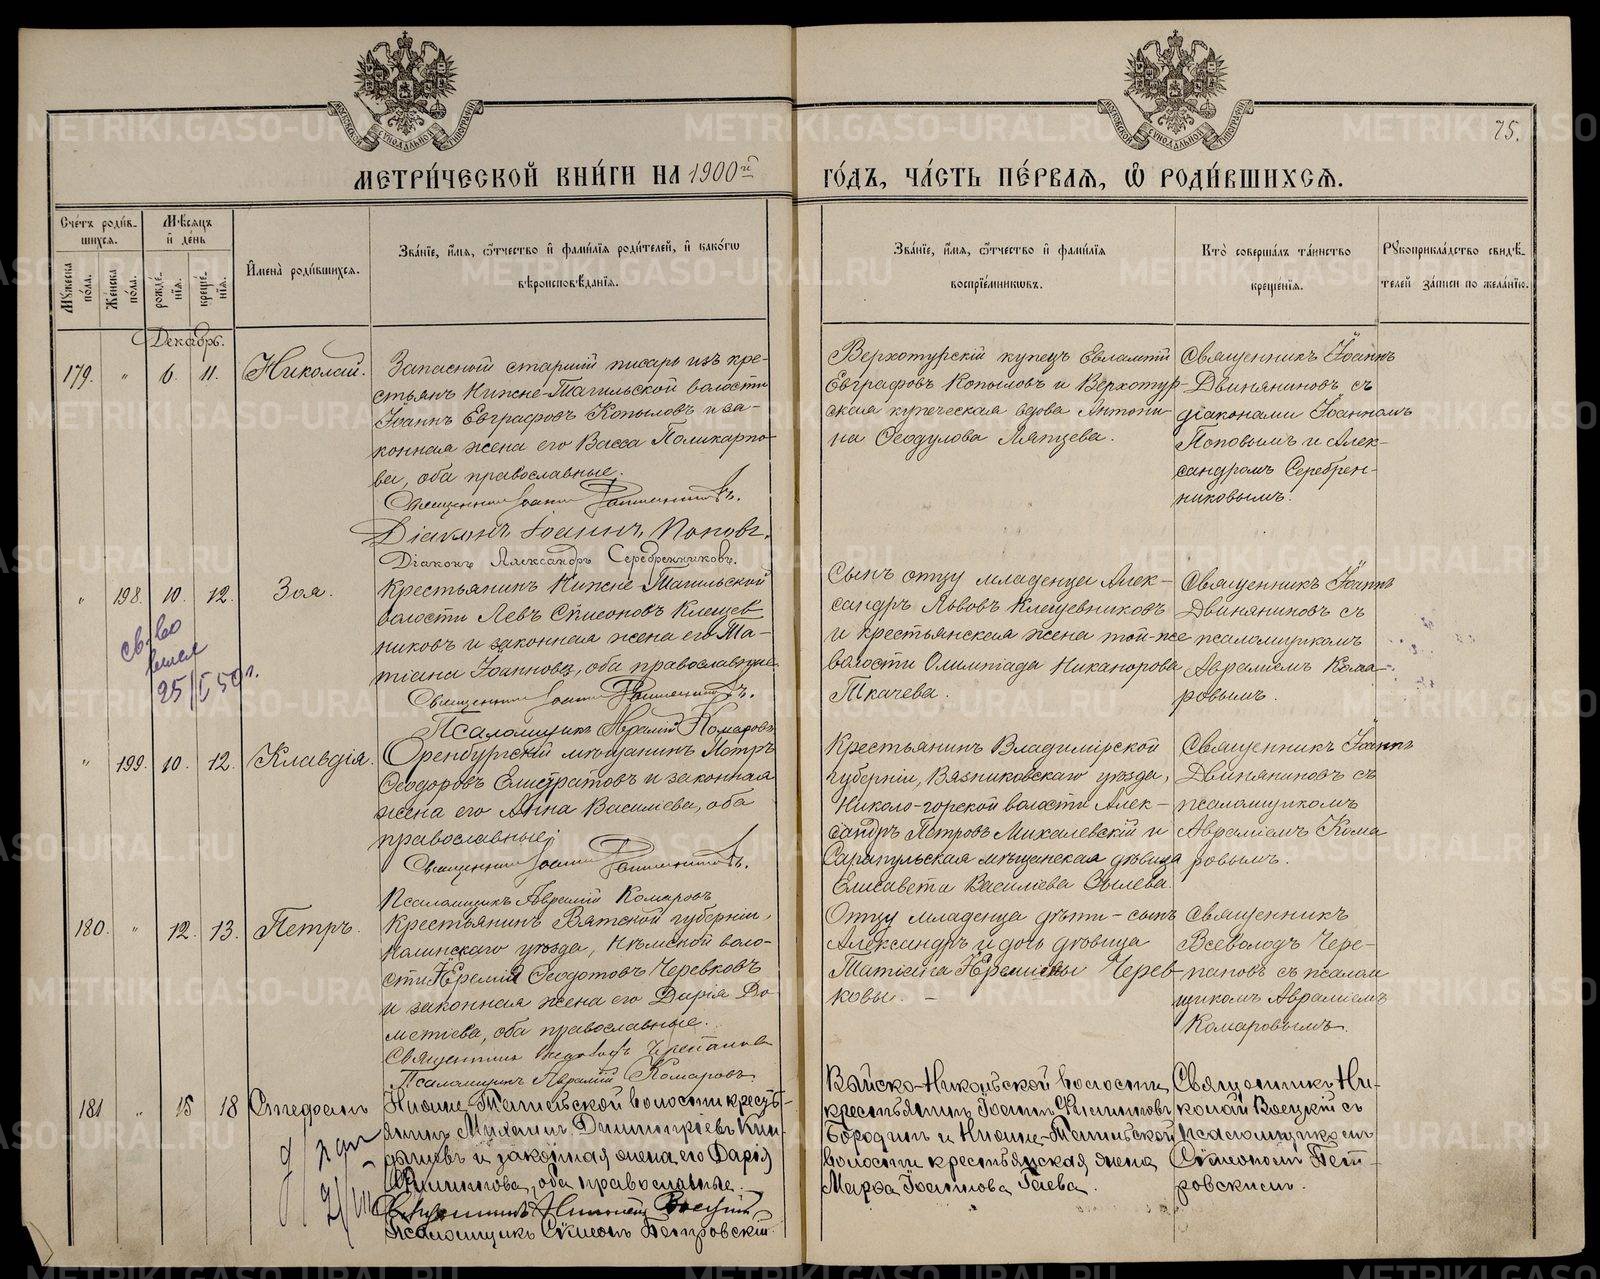 75.
МЕТРИ́ЧЕСКОЙ КНИ́ГИ НА 1900й
ГО́ДЪ, ЧА́СТЬ ПЕ́РВАЯ, Ѡ҆ РОДИ́ВШИХСЯ.
Сче́тъ роди́в-
шихся.
Мѣ́сяцъ
и҆ де́нь
Мꙋ́жеска по́ла.
Же́нска по́ла.
рожде́-
нїя.
креще́-
нїя.
И҆мена̀ роди́вшихся.
Зва́нїе, и҆́мя, ѻ҆́тчество и҆ фами́лїя роди́телей, и҆ како́гѡ
вѣроисповѣ́данїя.
Зва́нїе, и҆́мя, ѻ҆́тчество и҆ фами́лїя
воспрїе́мниковъ.
Кто̀ соверша́лъ та́инство
креще́нїя.
Рꙋкоприкла́дство свидѣ́-
телей за́писи по жела́нїю.
Декабрь.
179. " 6. 11. Николай.
Запасной старшій писарь изъ кре-
стьянъ Нижне-Тагильской волости
Іоаннъ Евграфовъ Копыловъ и за-
конная жена его Васса Поликарпо-
ва, оба православные.
Священникъ Іоаннъ Двиняниновъ.
Діаконъ Іоаннъ Поповъ.
Діаконъ Александръ Серебренниковъ.
Верхотурскій купецъ Евлампій
Евграфовъ Копыловъ и Верхотур-
ская купеческая вдова Антони-
на Ѳеодулова Ляпцева.
Священникъ Іоаннъ
Двиняниновъ съ
діаконами Іоанномъ
Поповымъ и Алек-
сандромъ Серебрен-
никовымъ.
" 198. 10. 12. Зоя.
св-во
25/I 50 г.
Крестьянинъ Нижне-Тагильской
волости Левъ Сѵмеоновъ Клещев-
никовъ и законная жена его Та-
тіана Іоаннова, оба православные
Священникъ Іоаннъ Двиняниновъ.
Псаломщикъ Аврамій Комаровъ
Сынъ отцу младенца Алек-
сандръ Львовъ Клещевниковъ
и крестьянская жена той-же
волости Олимпіада Никанорова
Ткачева.
Священникъ Іоаннъ
Двиняниновъ съ
псаломщикомъ
Авраміемъ Кома-
ровымъ.
" 199. 10. 12. Клавдія.
Оренбургскій мѣщанинъ Петръ
Ѳеодоровъ Елистратовъ и законная
жена его Анна Василіева, оба
православные.
Священникъ Іоаннъ Двиняниновъ.
Псаломщикъ Аврамій Комаровъ
Крестьянинъ Владимірской
губерніи, Вязниковскаго уѣзда,
Николо-горской волости Алек-
сандръ Петровъ Михалевскій и
Сарапульская мѣщанская дѣвица
Елисавета Василіева Зылева.
Священникъ Іоаннъ
Двиняниновъ съ
псаломщикомъ
Авраміемъ Кома
ровымъ.
180. " 12. 13. Петръ.
Крестьянинъ Вятской губерніи,
Нолинскаго уѣзда, Нѣмской воло-
сти Іеремія Ѳеодотовъ Черевковъ
и законная жена его Дарія До-
метіева, оба православные.
Священникъ Всеволодъ Черепановъ
Псаломщикъ Аврамій Комаровъ.
Отцу младенца дѣти - сынъ
Александръ и дочь дѣвица
Татіана Іереміевы Черев-
ковы. -
Священникъ
Всеволодъ Чере-
пановъ съ псалом
щикомъ Авраміемъ
Комаровымъ.
181 " 15 18 Стефанъ
Нижне-Тагильской волости кресть-
янинъ Михаилъ Димитріевъ Кин-
дяшевъ и законная жена его Дарія
Филиппова, оба православные.
Священникъ Николай Воецкій
Псаломщикъ Сѵмеонъ Петровскій
Войско-Никольской волости
крестьянинъ Іоаннъ Филипповъ
Бородинъ и Нижне-Тагильской
волости крестьянская жена
Марѳа Іоаннова Гаева.
Священникъ Ни-
колай Воецкій съ
псаломщикомъ
Сѵмеономъ Пет-
ровскимъ.
METRIKI.GASO-URAL.RU